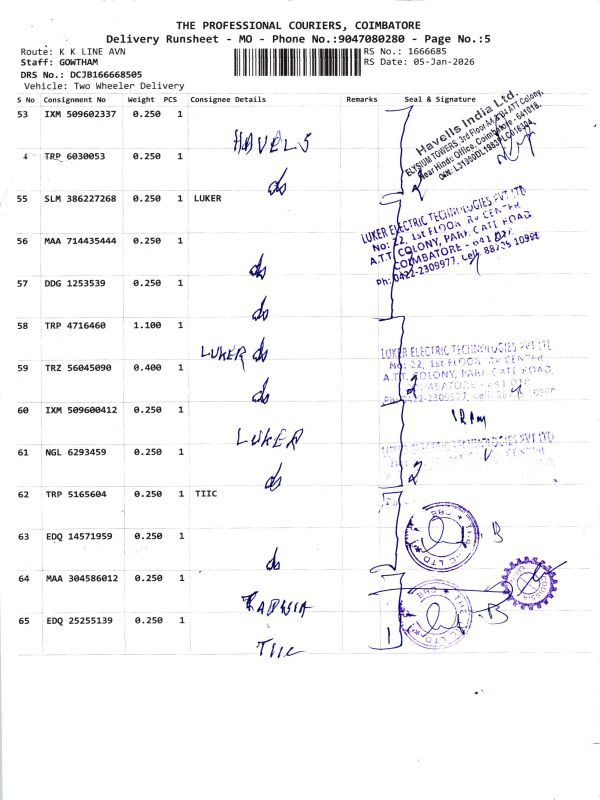 THE PROFESSIONAL COURIERS, COIMBATORE
Delivery Runsheet - MO - Phone No.:9047080280 - Page No.:5
Route: K K LINE AVN RS No.: 1666685
Staff: GOWTHAM RS Date: 05-Jan-2026
DRS No.: DCJB166668505
Vehicle: Two Wheeler Delivery
S No Consignment No Weight PCS Consignee Details Remarks Seal & Signature
53 IXM 509602337 0.250 1
HAVELS
Havells India Ltd.
ELYSIUM TOWERS, 3rd Floor ATT Colony,
Near Hindu Office, Coimbatore - 641018.
4 TRP 6030053 0.250 1
do
55 SLM 386227268 0.250 1 LUKER
LUKER ELECTRIC TECHNOLOGIES PVT LTD
No: 22, 1st FLOOR, RV CENTER
A.T.T. COLONY, PARK GATE ROAD,
COIMBATORE - 641 018
Ph: 0422-2309977, Cell:
56 MAA 714435444 0.250 1
do
57 DDG 1253539 0.250 1
do
58 TRP 4716460 1.100 1
LUKER do
LUKER ELECTRIC TECHNOLOGIES PVT LTD
No: 22, 1st FLOOR, RV CENTER
A.T.T. COLONY, PARK GATE ROAD,
COIMBATORE - 641 018
Ph: 0422-2309977, Cell:
59 TRZ 56045090 0.400 1
2
do
60 IXM 509600412 0.250 1
LUKER
LUKER ELECTRIC TECHNOLOGIES PVT LTD
61 NGL 6293459 0.250 1
2
do
62 TRP 5165604 0.250 1 TIIC
63 EDQ 14571959 0.250 1
B
do
64 MAA 304586012 0.250 1
B
65 EDQ 25255139 0.250 1
1
TIIC